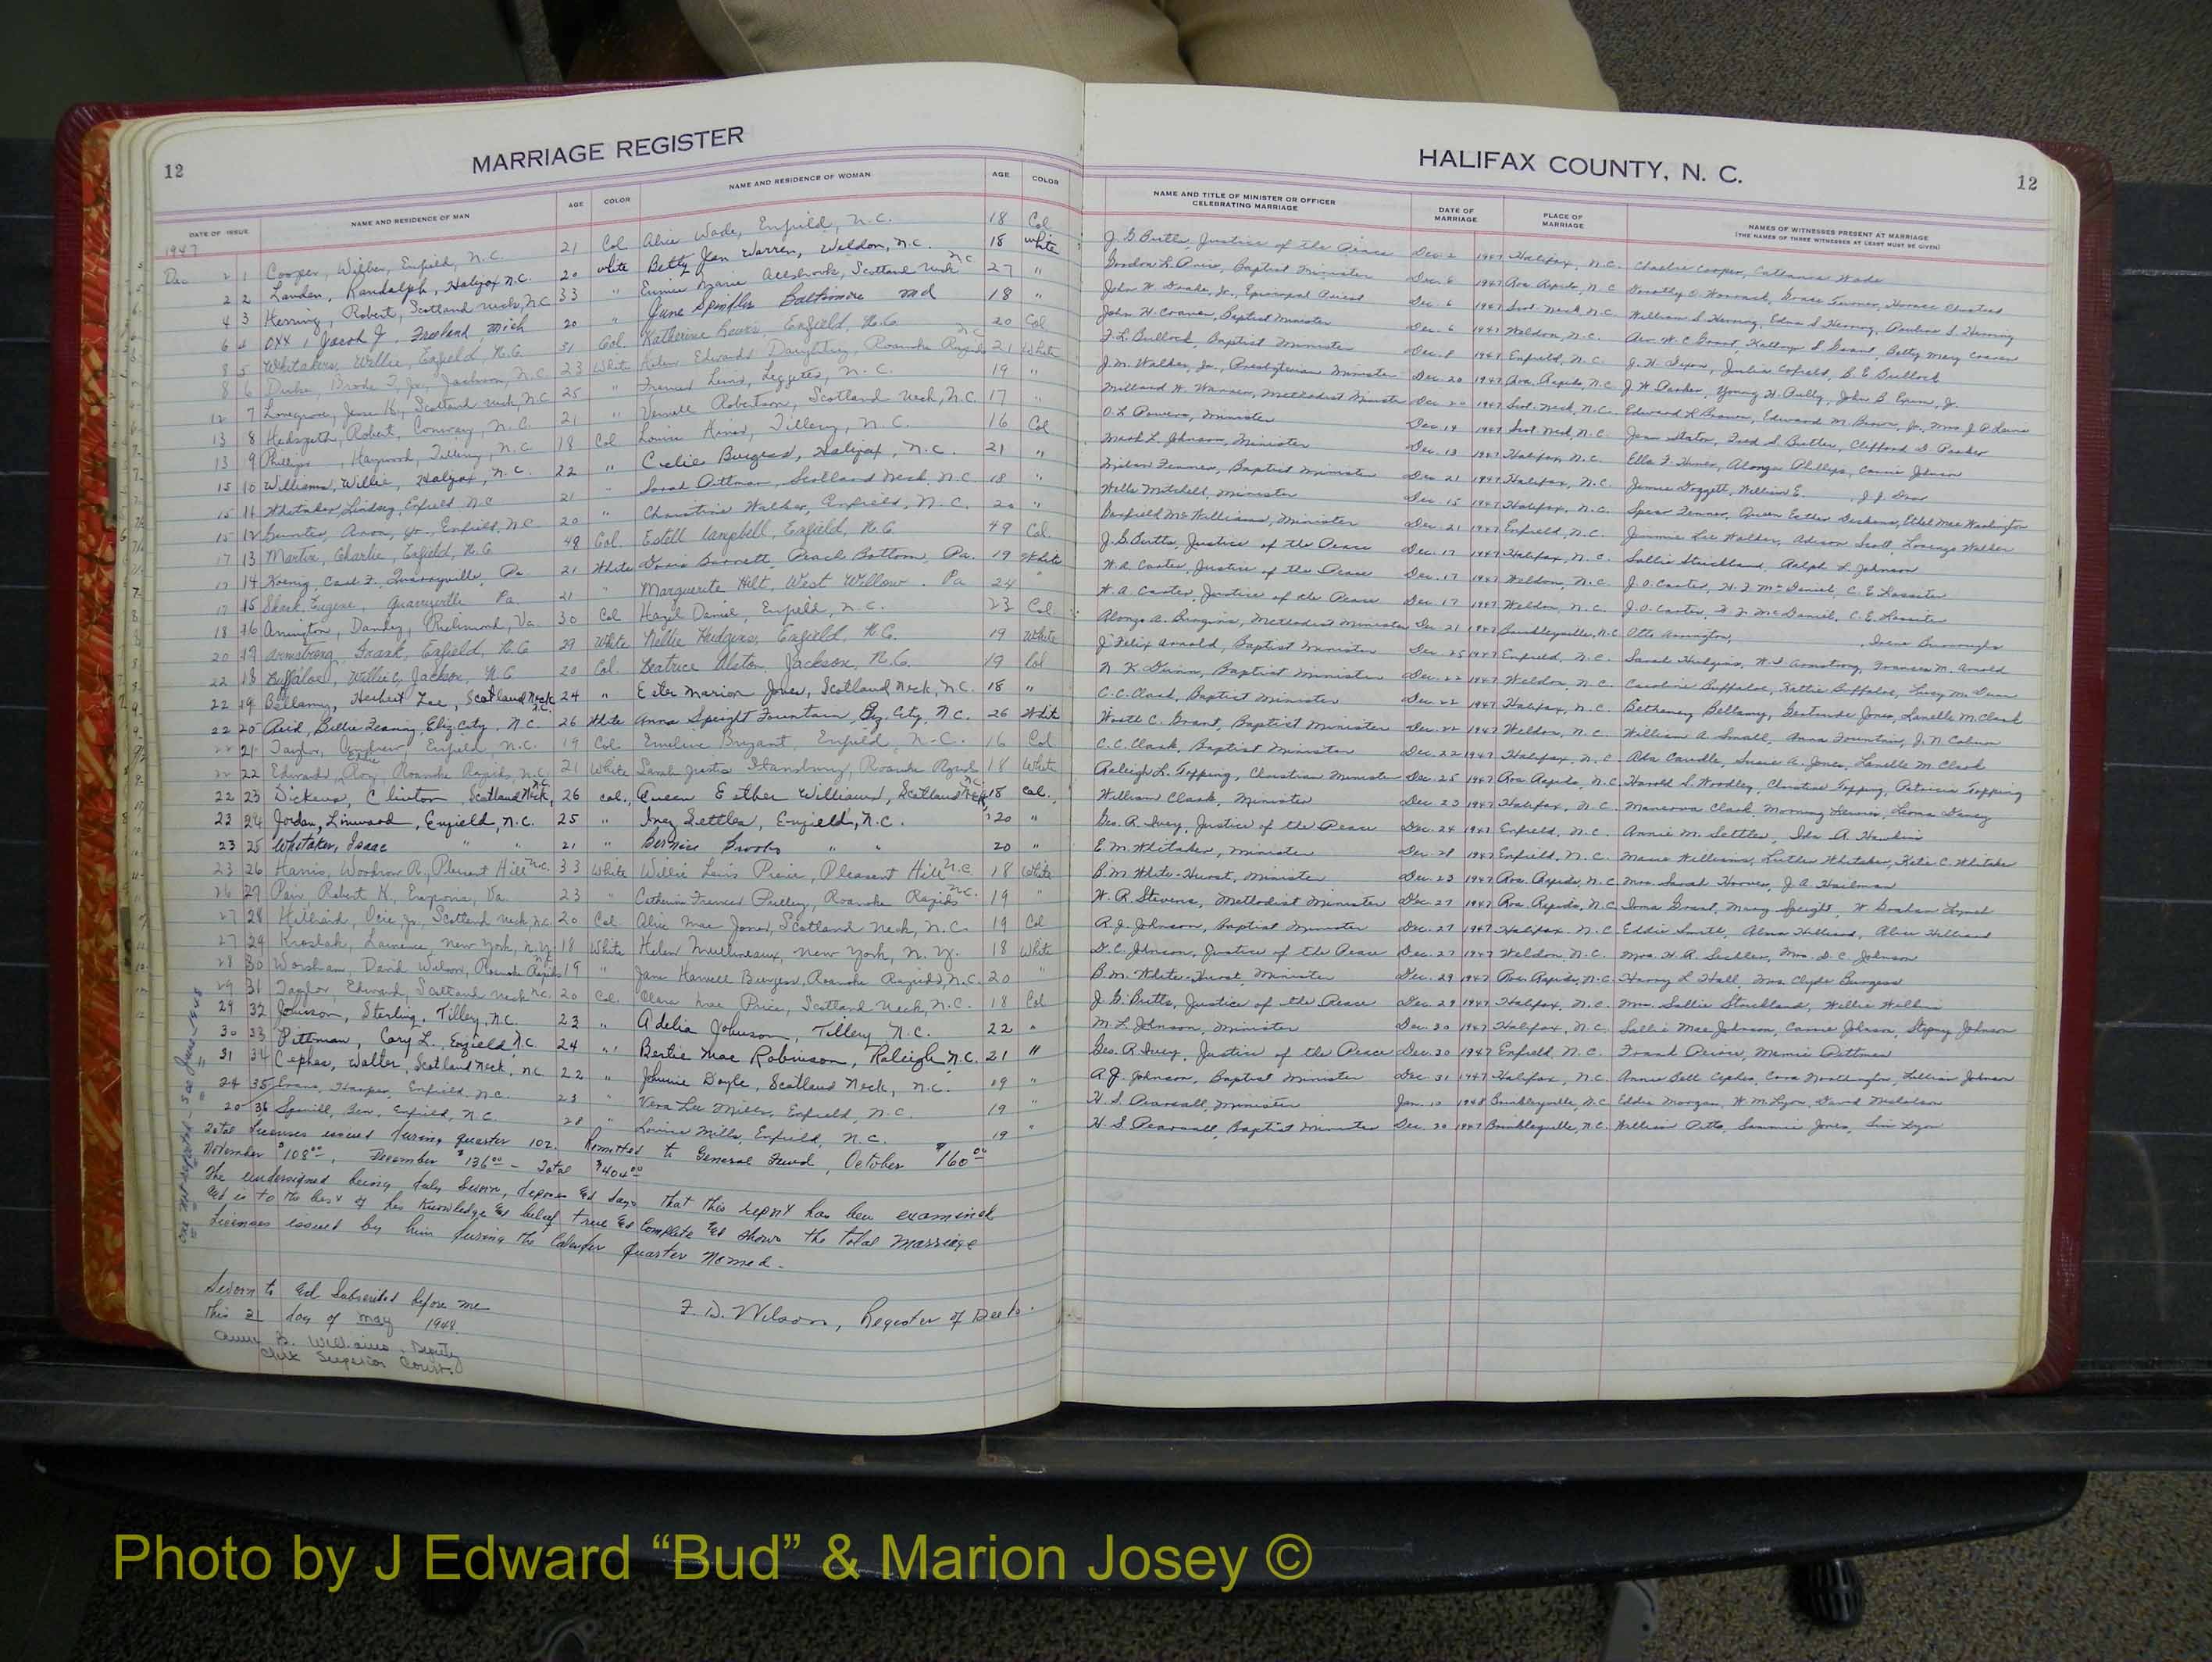 12
MARRIAGE REGISTER
DATE OF ISSUE NAME AND RESIDENCE OF MAN AGE COLOR NAME AND RESIDENCE OF WOMAN AGE COLOR
1947
Dec 2 1 Cooper, Wilber, Enfield, N.C. 21 Col Alice Wade, Enfield, N.C. 18 Col
2 2 Landen, Randolph, Halifax N.C. 20 white Betty Jean Warren, Weldon, N.C. 18 white
4 3 Herring, Robert, Scotland Neck, N.C. 33 " Eunice Marie Allsbrook, Scotland Neck N.C. 27 "
6 4 Oxx, Jacob J. Mich 20 " June Baltimore Md 18 "
8 5 Whitaker, Willie, Enfield, N.C. 31 Col. Katherine Enfield, N.C. 20 Col
8 6 Duke, Jr., Jackson, N.C. 23 White Helen Edwards Daughtry, Roanoke Rapids N.C. 21 White
12 7 Scotland Neck, N.C. 25 " Frances N.C. 19 "
13 8 Robert, Conway, N.C. 21 " Robertson, Scotland Neck, N.C. 17 "
13 9 Phillips, Haywood, Tillery, N.C. 18 Col Louise Tillery, N.C. 16 Col.
15 10 Williams, Willie, Halifax, N.C. 22 " Celie Burgess, Halifax, N.C. 21 "
15 11 Whitaker, Lindsey, Enfield N.C. 21 " Sarah Pittman, Scotland Neck, N.C. 18 "
15 12 Enfield, N.C. 20 " Christine Walker, Enfield, N.C. 20 "
17 13 Martin, Charlie, Enfield, N.C. 48 Col. Estell Campbell, Enfield, N.C. 49 Col.
17 14 Koenig, Carl F., Quarryville, Pa 21 White Doris Barnett, Peach Bottom, Pa. 19 White
17 15 Eugene, Quarryville Pa. 21 " Marguerite Hilt, West Willow. Pa 24 "
18 16 Arrington, Dandey, Richmond, Va. 30 Col Hazel Daniel, Enfield, N.C. 23 Col.
20 17 Armstrong, Frank, Enfield, N.C. 29 White Nellie Hudgins, Enfield, N.C. 19 White
22 18 Buffaloe, Willie C, Jackson, N.C. 20 Col. Beatrice Alston, Jackson, N.C. 19 Col
22 19 Bellamy, Herbert Lee, Scotland Neck N.C. 24 " Ester Marion Jones, Scotland Neck, N.C. 18 "
22 20 Reid, Billie Eliz. City, N.C. 26 White Anna Speight Fountain, Eliz. City, N.C. 26 White
22 21 Taylor, Enfield, N.C. 19 Col. Emeline Bryant, Enfield, N.C. 16 Col
22 22 Edwards, Roy, Roanoke Rapids, N.C. 21 White Sarah Stansbury, Roanoke Rapids N.C. 18 White
22 23 Dickens, Clinton, Scotland Neck, N.C. 26 col., Queen Esther Williams, Scotland Neck, N.C. 18 col.
23 24 Jordan, Linwood, Enfield, N.C. 25 " Inez Settles, Enfield, N.C. 20 "
23 25 Whitaker, Isaac " " 21 " Bernice Brooks " " 20 "
23 26 Harris, Woodrow R., Pleasant Hill N.C. 33 White Willie Lois Pleasant Hill N.C. 18 White
26 27 Pair, Robert H., Emporia, Va. 23 " Catherine Frances Pulley, Roanoke Rapids N.C. 19 "
27 28 Hilliard, Jr., Scotland Neck, N.C. 20 Col Alice Mae Jones, Scotland Neck, N.C. 19 Col
27 29 Lawrence, New York, N.Y. 18 White Helen New York, N.Y. 18 White
28 30 Worsham, David Wilson, Roanoke Rapids N.C. 19 " Jane Harrell Burgess, Roanoke Rapids, N.C. 20 "
29 31 Taylor, Edward, Scotland Neck N.C. 20 Col. Clara Mae Price, Scotland Neck, N.C. 18 Col
29 32 Johnson, Sterling, Tillery, N.C. 23 " Adelia Johnson, Tillery N.C. 22 "
30 33 Pittman, Cary L., Enfield, N.C. 24 " Bertie Mae Robinson, Raleigh, N.C. 21 "
31 34 Cephas, Walter, Scotland Neck, N.C. 22 " Johnnie Doyle, Scotland Neck, N.C. 19 "
24 35 Evans, Harper, Enfield, N.C. 23 " Vera Lee Mills, Enfield, N.C. 19 "
20 36 Spruill, Ben, Enfield, N.C. 28 " Louise Mills, Enfield, N.C. 19 "
Total licenses issued during quarter 102. Remitted to General Fund, October $160.00
November $108.00, December $136.00 - Total $404.00
The undersigned being duly sworn, deposes and says that this report has been examined
and is to the best of his knowledge and belief true and complete and shows the total marriage
licenses issued by him during the calendar quarter named.
Sworn to and Subscribed before me
this 21 day of May 1948.
F. D. Wilson, Register of Deeds.
B. Williams, Deputy
Clerk Superior Court.
HALIFAX COUNTY, N. C.
12
NAME AND TITLE OF MINISTER OR OFFICER CELEBRATING MARRIAGE DATE OF MARRIAGE PLACE OF MARRIAGE NAMES OF WITNESSES PRESENT AT MARRIAGE
(THE NAMES OF THREE WITNESSES AT LEAST MUST BE GIVEN)
J. G. Butts, Justice of the Peace Dec. 2 1947 Halifax, N.C. Charlie Cooper, Catherine Wade
Gordon L. Price, Baptist Minister Dec. 6 1947 Roa. Rapids, N.C. Dorothy Grace Turner, Horace
John W. Drake, Jr., Episcopal Priest Dec. 6 1947 Scot. Neck N.C. William S. Herring, Edna S. Herring, Pauline S. Herring
John H. Craven, Baptist Minister Dec. 6 1947 Weldon, N.C. Rev. W. C. Grant, Kathryn S. Grant, Betty Mary Craven
F. L. Bullock, Baptist Minister Dec. 8 1947 Enfield, N.C. Julia Cofield, B. E. Bullock
J. M. Walker, Jr., Presbyterian Minister Dec. 20 1947 Roa. Rapids, N.C.
Millard W. Warren, Methodist Minister Dec. 1947 Scot. Neck, N.C. Edward R. Brown, Edward M. Brown, Jr., Mrs. J. P. Lewis
O. L. Powers, Minister Dec. 19 1947 Scot. Neck, N.C. Jean Staton, Fred S. Butler, Clifford D. Parker
Mark L. Johnson, Minister Dec. 13 1947 Halifax, N.C. Ella F. Hines, Alonza Phillips, Carrie Johnson
Wilson Fenner, Baptist Minister Dec. 21 1947 Halifax, N.C. Jennie Doggett, William E.
Wells Mitchell, Minister Dec. 15 1947 Halifax, N.C. Spear Fenner, Queen Esther Dickens, Ethel Mae Washington
Benfield McWilliams, Minister Dec. 21 1947 Enfield, N.C. Jimmie Lee Walker, Adison Scott, Lorenzo Walker
J. G. Butts, Justice of the Peace Dec. 17 1947 Halifax, N.C. Sallie Strickland, Ralph L. Johnson
W. A. Carter, Justice of the Peace Dec. 17 1947 Weldon, N.C. J. O. Carter, H. F. McDaniel, C. E. Lassiter
W. A. Carter, Justice of the Peace Dec. 17 1947 Weldon, N.C. J. O. Carter, H. F. McDaniel, C. E. Lassiter
Alonzo A. Methodist Minister Dec. 21 1947 Brinkleyville, N.C. Otto Arrington, Irene Burroughs
J. Felix Arnold, Baptist Minister Dec. 25 1947 Enfield, N.C. Sarah Hudgins, W. S. Armstrong, Frances M. Arnold
N. K. Dunn, Baptist Minister Dec. 22 1947 Weldon, N.C. Caroline Buffaloe, Kattie Buffaloe, Lucy M. Dunn
C. C. Clark, Baptist Minister Dec. 22 1947 Halifax, N.C. Betheney Bellamy, Gertrude Jones, Lanelle M. Clark
C. Grant, Baptist Minister Dec. 22 1947 Weldon, N.C. William A. Small, Anna Fountain, J. N.
C. C. Clark, Baptist Minister Dec. 22 1947 Halifax, N.C. Ada Caudle, Susie A. Jones, Lanelle M. Clark
Raleigh L. Topping, Christian Minister Dec. 25 1947 Roa. Rapids, N.C. Harold L. Woodley, Christine Topping, Patricia Topping
William Clark, Minister Dec. 23 1947 Halifax, N.C. Manerva Clark, Leona Dancy
Geo. R. Ivey, Justice of the Peace Dec. 24 1947 Enfield, N.C. Annie M. Settles, Ida A. Hawkins
E. M. Whitaker, Minister Dec. 28 1947 Enfield, N.C. Mamie Williams, Luther Whitaker, Katie C. Whitaker
B. M. White-Hurst, Minister Dec. 23 1947 Roa. Rapids, N.C. Mrs. Sarah Hoover, J. A.
W. R. Stevens, Methodist Minister Dec. 27 1947 Roa. Rapids, N.C. Iona Grant, Mary Speight, W. Graham Lynch
R. J. Johnson, Baptist Minister Dec. 27 1947 Halifax, N.C. Eddie Smith, Alma Hilliard, Alice Hilliard
D. C. Johnson, Justice of the Peace Dec. 27 1947 Weldon, N.C. Mrs. H. R. Mrs. D. C. Johnson
B. M. White-Hurst, Minister Dec. 29 1947 Roa. Rapids, N.C. Harry L. Hall, Mrs. Clyde Burgess
J. G. Butts, Justice of the Peace Dec. 29 1947 Halifax, N.C. Mrs. Sallie Strickland, Willie Wilkins
M. L. Johnson, Minister Dec. 30 1947 Halifax, N.C. Sallie Mae Johnson, Carrie Johnson, Johnson
Geo. R. Ivey, Justice of the Peace Dec. 30 1947 Enfield, N.C. Frank Mamie Pittman
R. J. Johnson, Baptist Minister Dec. 31 1947 Halifax, N.C. Annie Bell Cephas, Cora Lillian Johnson
H. S. Pearsall, Minister Jan. 10 1948 Brinkleyville, N.C. Eddie Morgan, W. M. Lyon, David Nicholson
H. S. Pearsall, Baptist Minister Dec. 20 1947 Brinkleyville, N.C. William Pitts, Sammie Jones, Lyon
Photo by J Edward “Bud” & Marion Josey ©